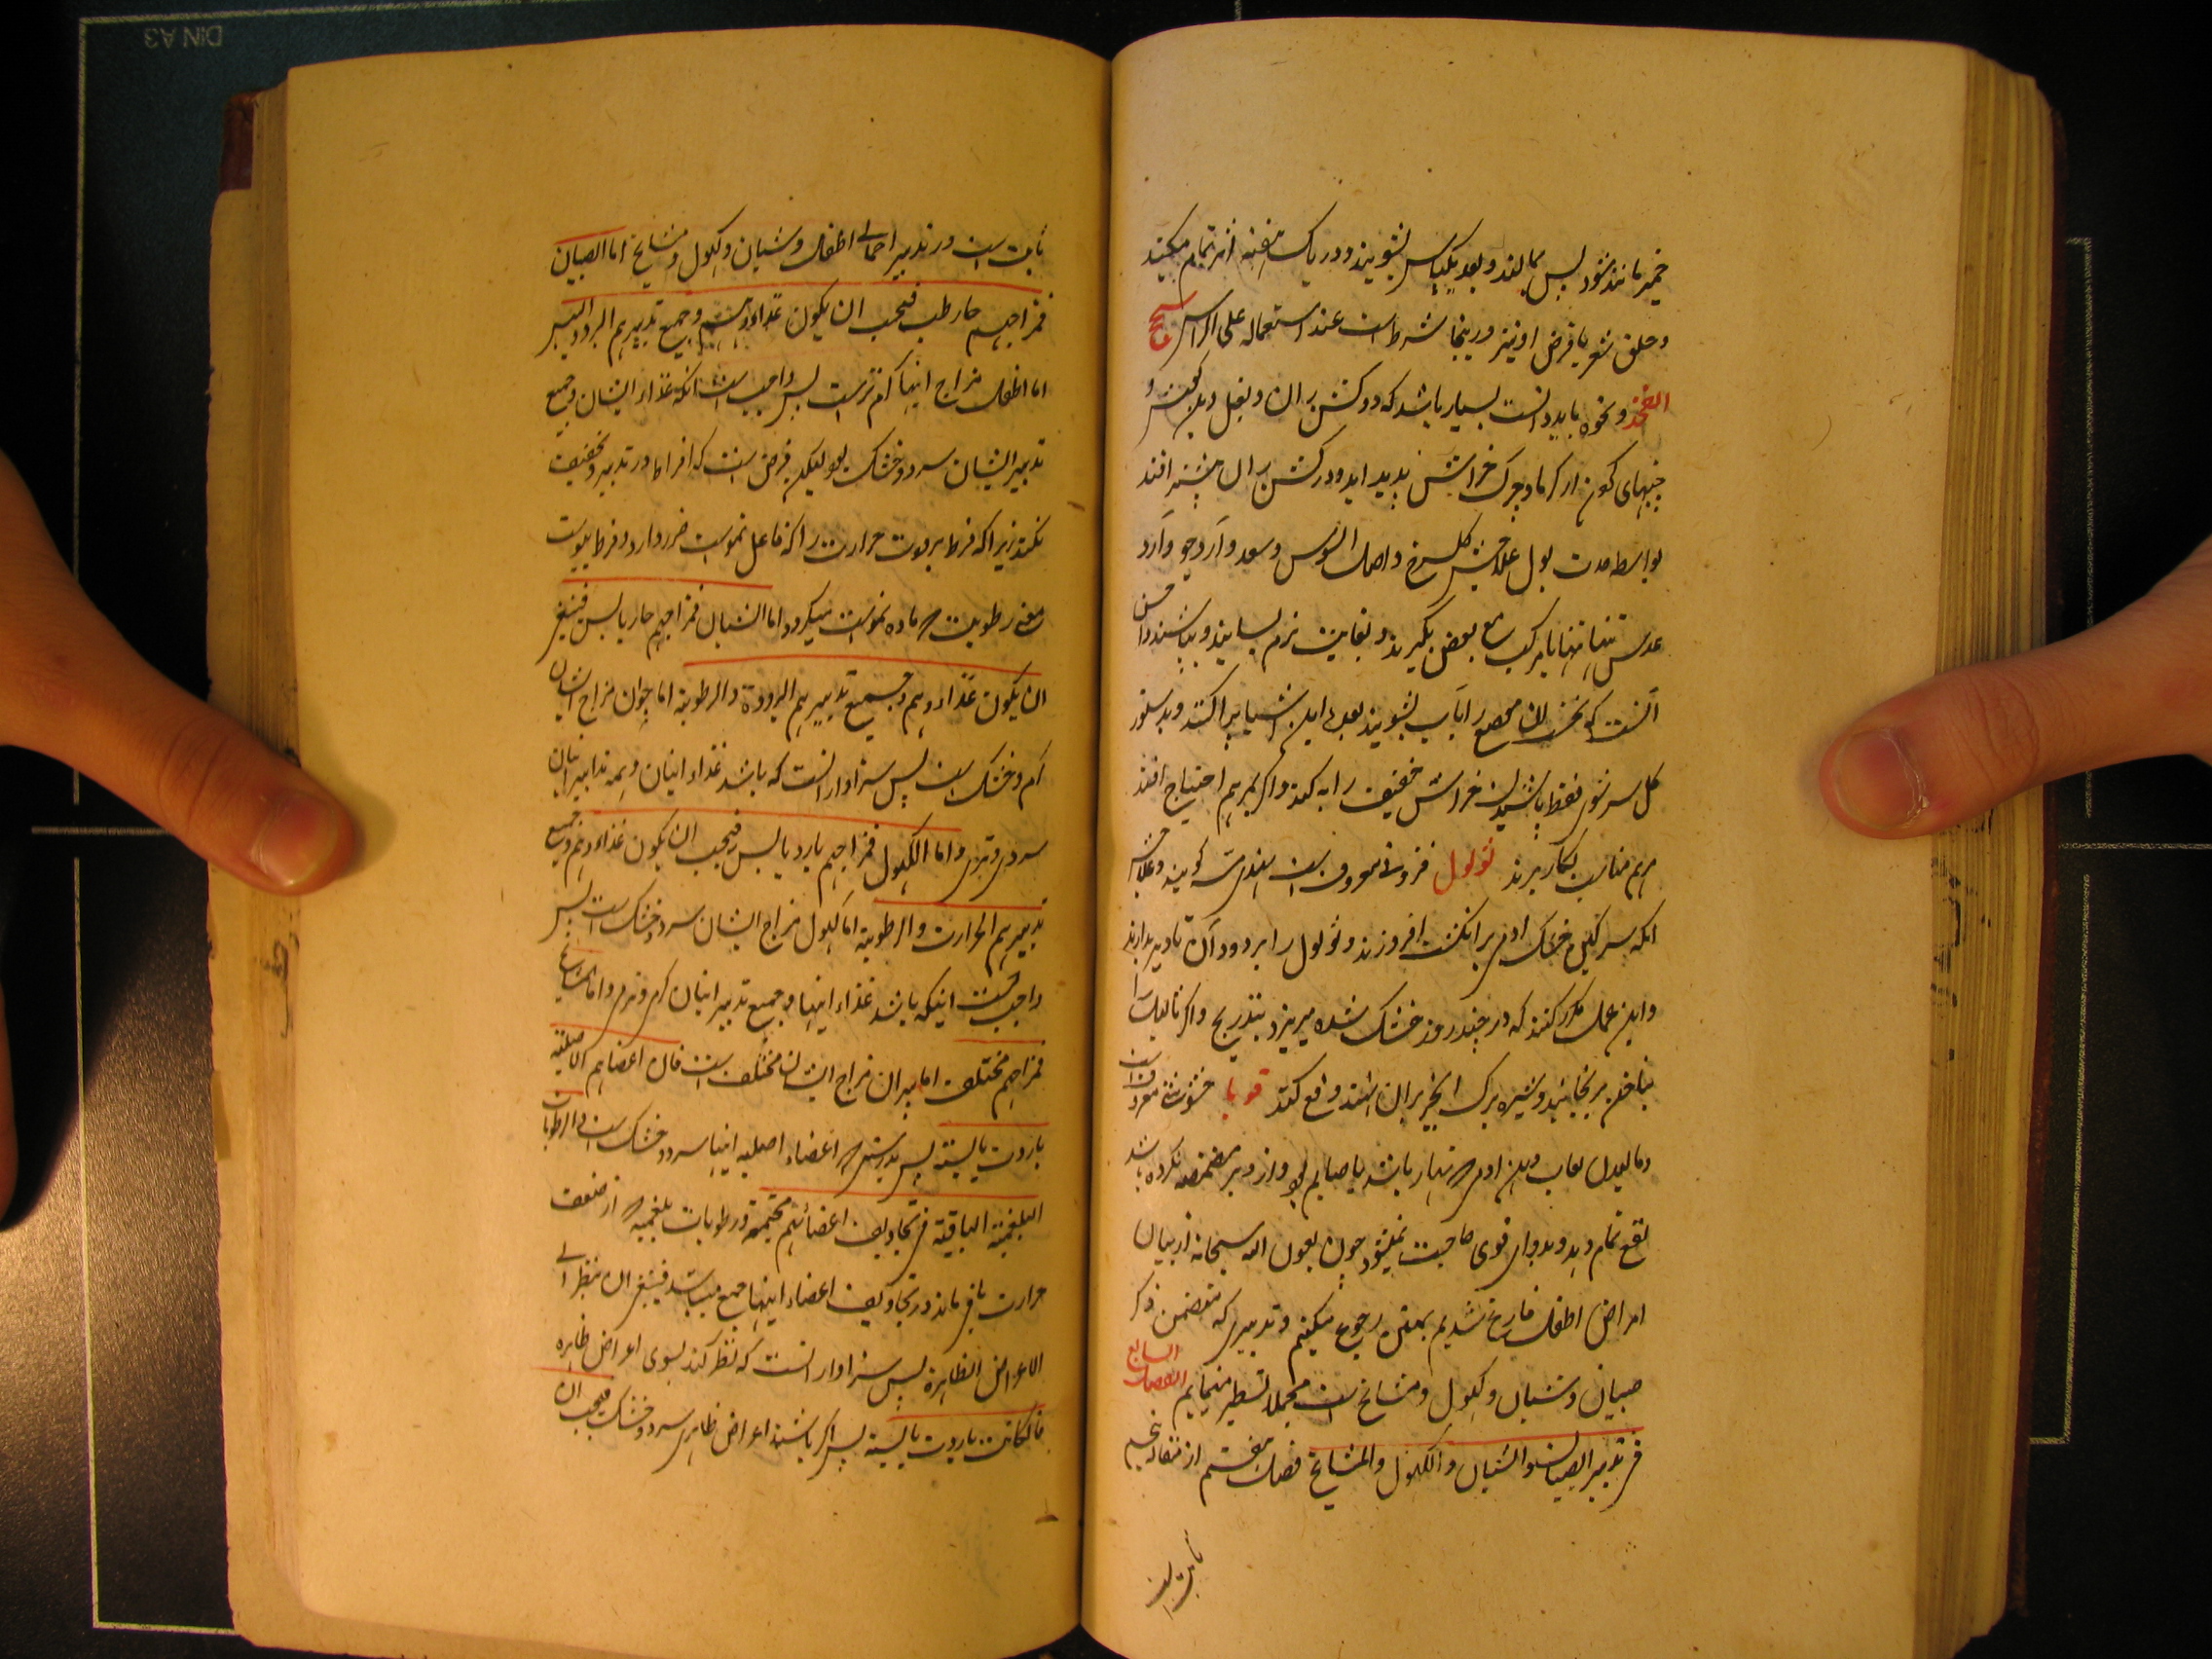 خمیر مانند شود پس بمالند و بعد یکپاس بشویند و در یک هفته اثر تمام میکند
و حلق شعر یا قرض او نیز درینجا شرط است عند استعماله علی الراس سحج
الفخذ و نحوه باید دانست بسیار باشد که در کش ران و بغل و بن گوش و
جنبهای کون از گرما و چرک خراش پدید اید و در کش ران بیشتر افتد
بواسطه حدت بول علاجش گل سرخ و اصل السوس و سعد و آرد جو و آرد
عدس تنها تنها یا مرکب مع بعض بگیرند و بغایت نرم بسایند و بپاشند و احسن
آنست که نخست ان موضع را بآب بشویند بعده این اشیا پراکنند و بدستور
گل سرشوی فقط پاشیدن خراش خفیف را به کند و اگر بمرهم احتیاج افتد
مرهم مناسب بکار برند ثولول فزونی معروف است بهندی مسه گویند و علاجش
آنکه سرگین خشک ادمی بر انگشت افروزند و ثولول را بر دود آن تا دیر بدارند
و این عمل مکرر کنند که در چند روز خشک شده میریزد بتدریج و اگر ثالیل را
بناخن برنجانند و شیره برگ انجیر بران نهند دفع کند قوبا خشونتی معروف است
و مالیدن لعاب دهن ادمی که نهار باشد یا صایم بود و از دیر مضمضه نکرده باشد
نفع تمام دهد و بدوای قوی حاجت نمیشود چون بعون الله سبحانه از بیان
امراض اطفال فارغ شدیم بمتن رجوع میکنیم و تدبیری که متضمن ذکر
صبیان و شبان و کهول و مشایخ است مجملا تسطیر مینمایم الفصل السابع
فی تدبیر الصبیان و الشبان و الکهول و المشایخ فصل هفتم از مقاله پنجم
ثابت است
ثابت است در تدبیر اجمالی اطفال و شبان و کهول و مشایخ اما الصبیان
فمزاجهم حار رطب فیجب ان یکون غذاؤهم و جمیع تدبیرهم البرد و الیبس
اما اطفال مزاج اینها گرم ترست پس واجب است آنکه غذاء ایشان و جمیع
تدبیر ایشان سرد و خشک بود لیکن فرض است که افراط در تدبیر و تخفیف
نکنند زیرا که فرط برودت حرارت را که فاعل نموست ضرر دارد و فرط یبوست
مفنی رطوبت که ماده نموست میگردد اما الشبان فمزاجهم حار یابس فینبغی
ان یکون غذاؤهم و جمیع تدبیرهم البرودة و الرطوبة اما جوان مزاج ایشان
گرم و خشک است پس سزاوار انست که باشد غذاء اینان و همه تدابیر اینان
سردی و تری و اما الکهول فمزاجهم بارد یابس فیجب ان یکون غذاؤهم و جمیع
تدبیرهم الحرارت و الرطوبة اما کهول مزاج ایشان سرد و خشک است پس
واجب است اینکه باشد غذاء اینها و جمیع تدبیر اینان گرمی و تری و اما المشایخ
فمزاجهم مختلف اما پیران مزاج ایشان مختلف است فان اعضاهم الاصلیة
باردت یابسة پس بدرستی که اعضاء اصلیه اینها سرد و خشک است و الرطوبات
البلغمیة الباقیة فی تجاویف اعضائهم مجتمعة و رطوبات بلغمیه که از ضعف
حرارت باقی ماند در تجاویف اعضاء اینها جمع میباشد فینبغی ان ینظر الی
الاعراض الظاهرة پس سزاوار انست که نظر کند بسوی اعراض ظاهره
فان کانت باردت یابسة پس اگر باشند اعراض ظاهری سرد و خشک فیجب ان